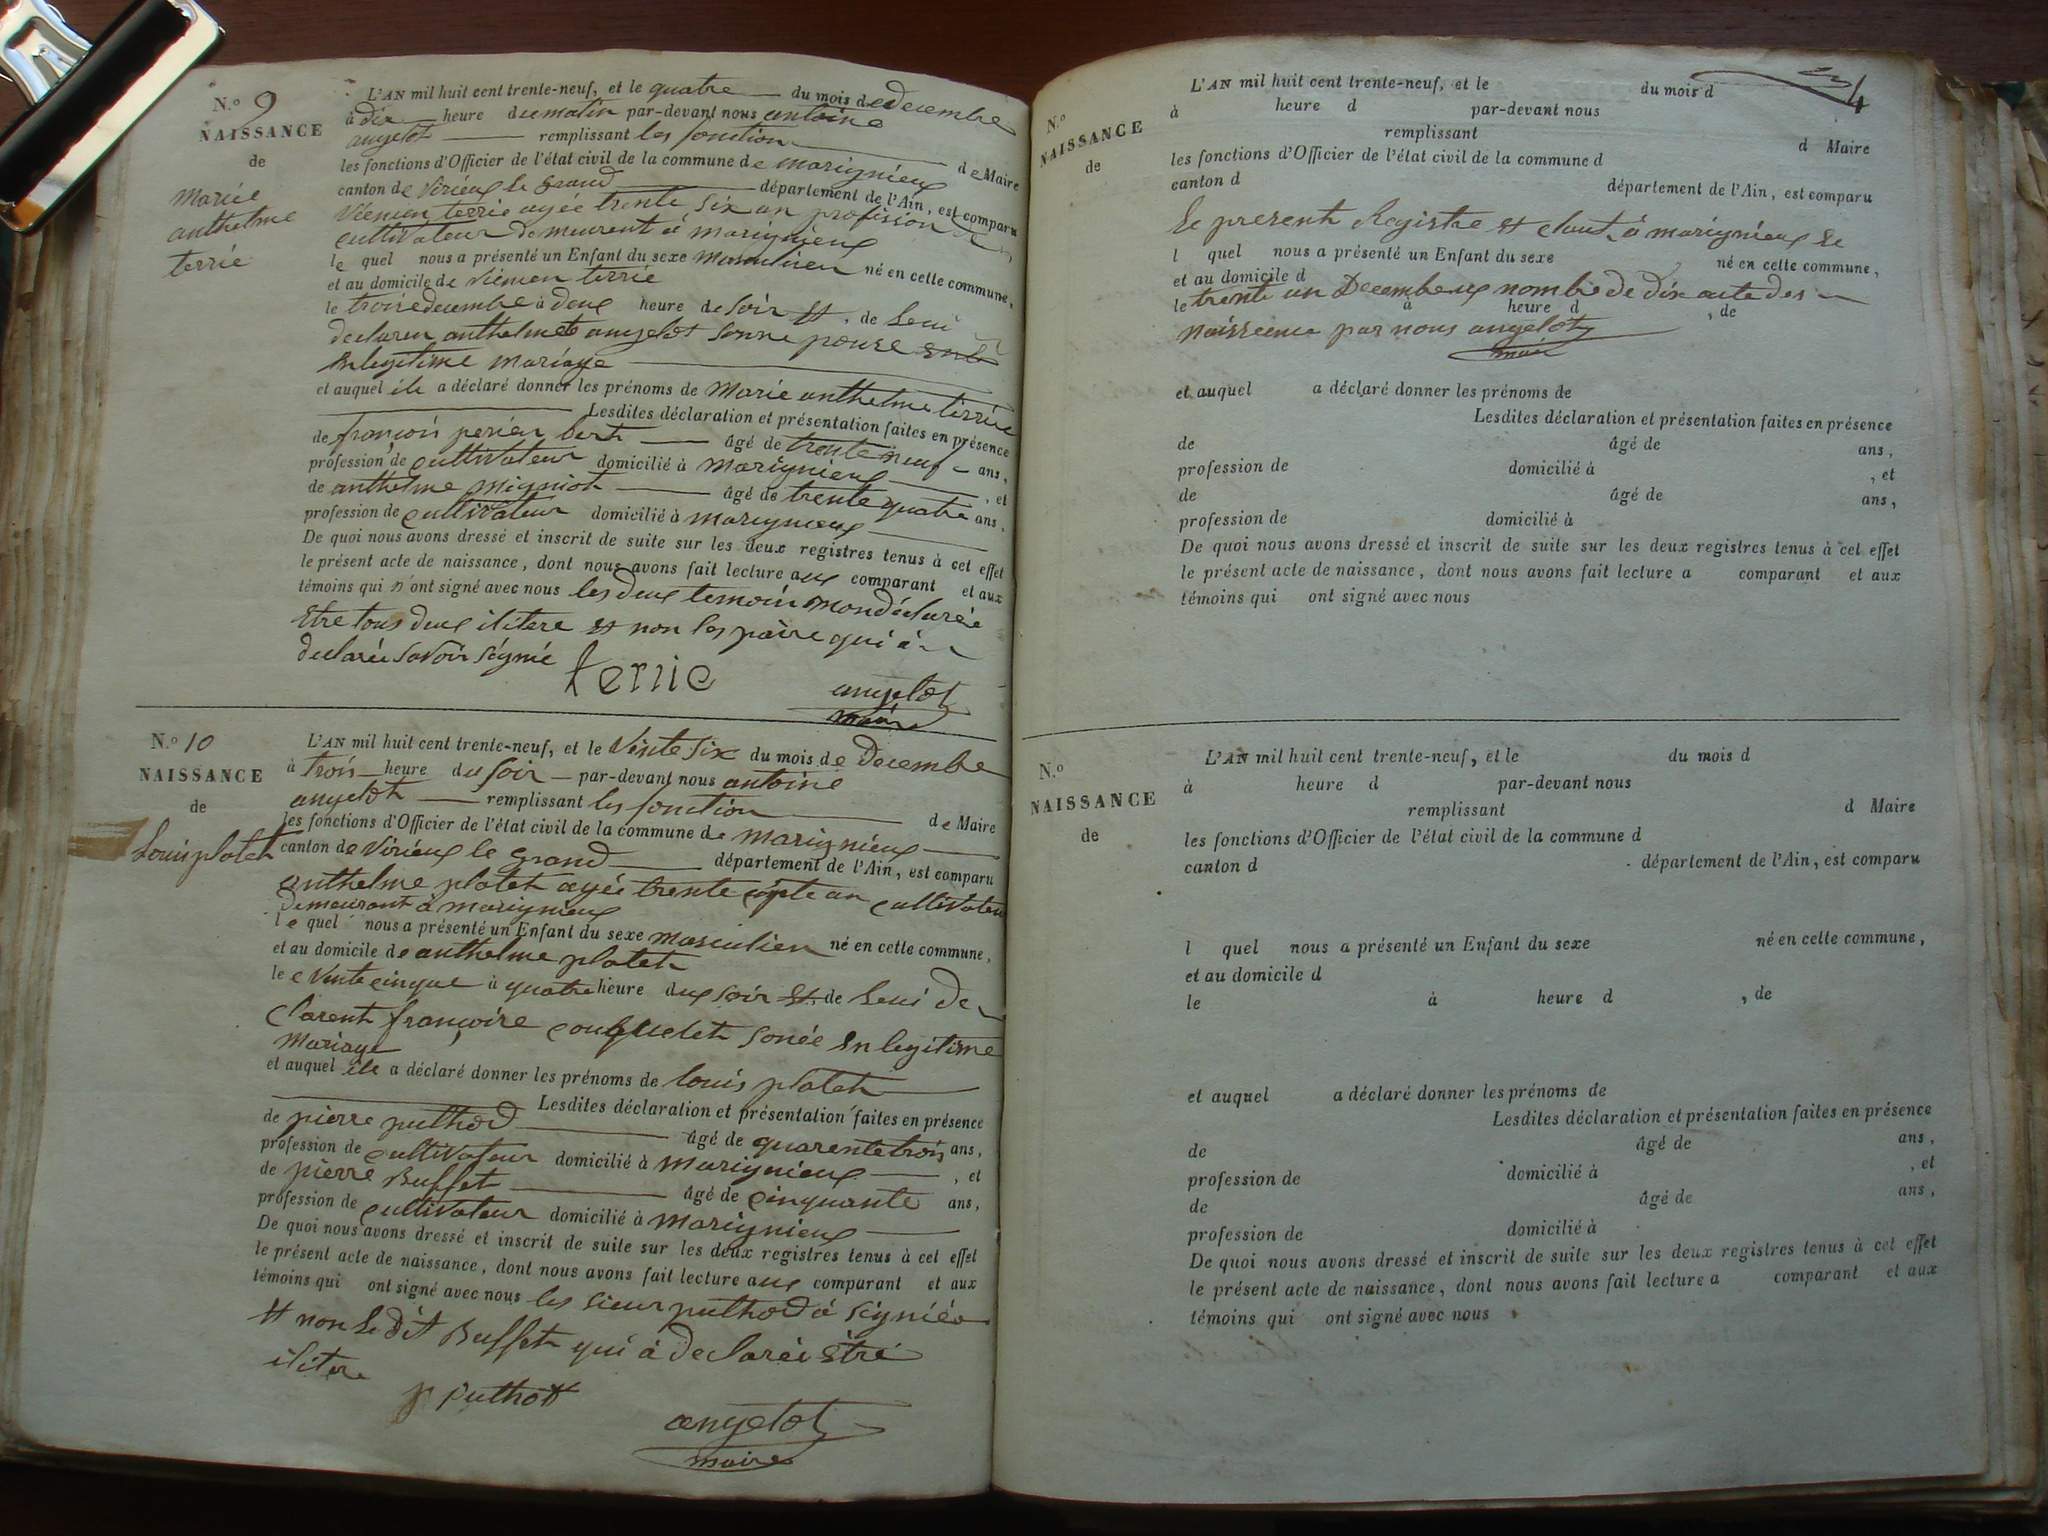 N.º 9
NAISSANCE
de
Marie
anthelme
terrié
L'AN mil huit cent trente-neuf, et le quatre du mois de Decembre
à dix heure du matin par-devant nous antoine
angelot remplissant les fonction
les fonctions d'Officier de l'état civil de la commune de marignieux de Maire
canton de Virieux le Grand département de l'Ain, est comparu
terrie agée trente six an profission de
cultivateur demeurent á marignieux
le quel nous a présenté un Enfant du sexe masculien né en cette commune,
et au domicile de terrié
le troiedecembre à deux heure de soir et de Leui
declaren anthelmete angelot sonne pouse
En legitime mariage
et auquel ile a déclaré donner les prénoms de Marie anthelme terrié
Lesdites déclaration et présentation faites en présence
de françois âgé de trente neuf ans,
profession de cultivateur domicilié à marignieux, et
de anthelme migniot âgé de trente quatre ans,
profession de cultivateur domicilié à marignieux
De quoi nous avons dressé et inscrit de suite sur les deux registres tenus à cet effet
le présent acte de naissance, dont nous avons fait lecture aux comparant et aux
témoins qui n'ont signé avec nous les deux temoin mondéclarée
Etre tous deux ilitere et non les paire qui á
declarée savoir signié
terrie
angelot
maire
N.º 10
NAISSANCE
de
Louis platet
L'AN mil huit cent trente-neuf, et le Vinte six du mois de Decembre
à trois heure du soir par-devant nous antoine
angelot remplissant les fonction
les fonctions d'Officier de l'état civil de la commune de marignieux de Maire
canton de Virieux le Grand département de l'Ain, est comparu
anthelme platet agée trente cepte an cultivateur
demeurant á marignieux
le quel nous a présenté un Enfant du sexe masculien né en cette commune,
et au domicile de anthelme platet
le Vinte cinque à quatre heure dux soir et de Leui de
clarent françoise sonée En legitime
Mariage
et auquel ile a déclaré donner les prénoms de louis platet
Lesdites déclaration et présentation faites en présence
de pierre puthod âgé de quarente trois ans,
profession de cultivateur domicilié à Marignieux, et
de pierre Buffet âgé de cinquante ans,
profession de cultivateur domicilié à Marignieux
De quoi nous avons dressé et inscrit de suite sur les deux registres tenus à cet effet
le présent acte de naissance, dont nous avons fait lecture aux comparant et aux
témoins qui ont signé avec nous les sieur puthod á signiée
et non le dit Buffet qui á declarée Etre
iliter
p puthott
angelot
maire
4
N.º
NAISSANCE
de
L'AN mil huit cent trente-neuf, et le du mois d
à heure d par-devant nous
remplissant
les fonctions d'Officier de l'état civil de la commune d d Maire
canton d département de l'Ain, est comparu
Le present Registre et clout à marignieux le
l quel nous a présenté un Enfant du sexe né en cette commune,
et au domicile d
trente un Decembreux nombre de dix acte des
le à heure d , de
naissence par nous angelot
maire
et auquel a déclaré donner les prénoms de
Lesdites déclaration et présentation faites en présence
de âgé de ans,
profession de domicilié à , et
de âgé de ans,
profession de domicilié à
De quoi nous avons dressé et inscrit de suite sur les deux registres tenus à cet effet
le présent acte de naissance, dont nous avons fait lecture a comparant et aux
témoins qui ont signé avec nous
N.º
NAISSANCE
de
L'AN mil huit cent trente-neuf, et le du mois d
à heure d par-devant nous
remplissant d Maire
les fonctions d'Officier de l'état civil de la commune d
canton d département de l'Ain, est comparu
l quel nous a présenté un Enfant du sexe né en cette commune,
et au domicile d
le à heure d , de
et auquel a déclaré donner les prénoms de
Lesdites déclaration et présentation faites en présence
de âgé de ans,
profession de domicilié à , et
de âgé de ans,
profession de domicilié à
De quoi nous avons dressé et inscrit de suite sur les deux registres tenus à cet effet
le présent acte de naissance, dont nous avons fait lecture a comparant et aux
témoins qui ont signé avec nous